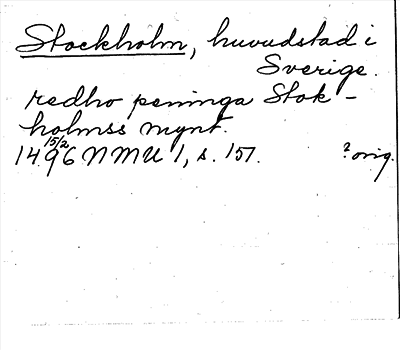 Stockholm, huvudstad i
Sverige.
redho peninga Stok-
holmss mynt.
14 15/2 96 NMU 1, s. 151. ? orig.